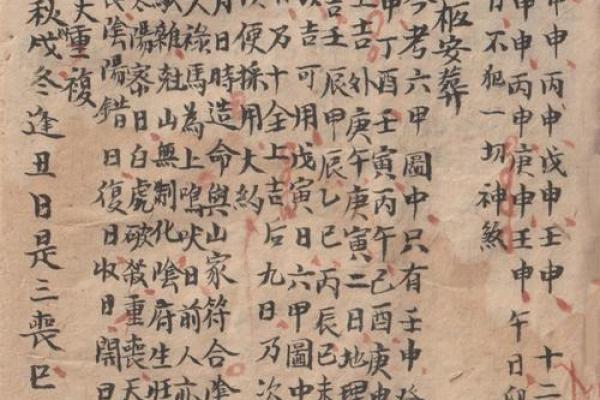 申甲申丙申戊申壬申 十二
申甲申丙申庚申壬申午日卯
日不犯一切神煞
柩安葬
今考六甲圖中只有壬申癸
申丁酉壬寅丙午己酉庚申
上吉外庚午庚寅二日地理
吉壬辰甲辰乙巳丙辰己未
次吉可用戊寅日六甲圖中
乃十全上吉后九日乃次
次便採用大約
月日時造命與山家符合陰
人祿馬為上鳴吠日前人亦
雜尅山無制化陰府生旺
陽寨日白虎破殺重喪天
長陰陽錯日復日收日閉日
重複
秋戌冬逢丑日是三喪巳